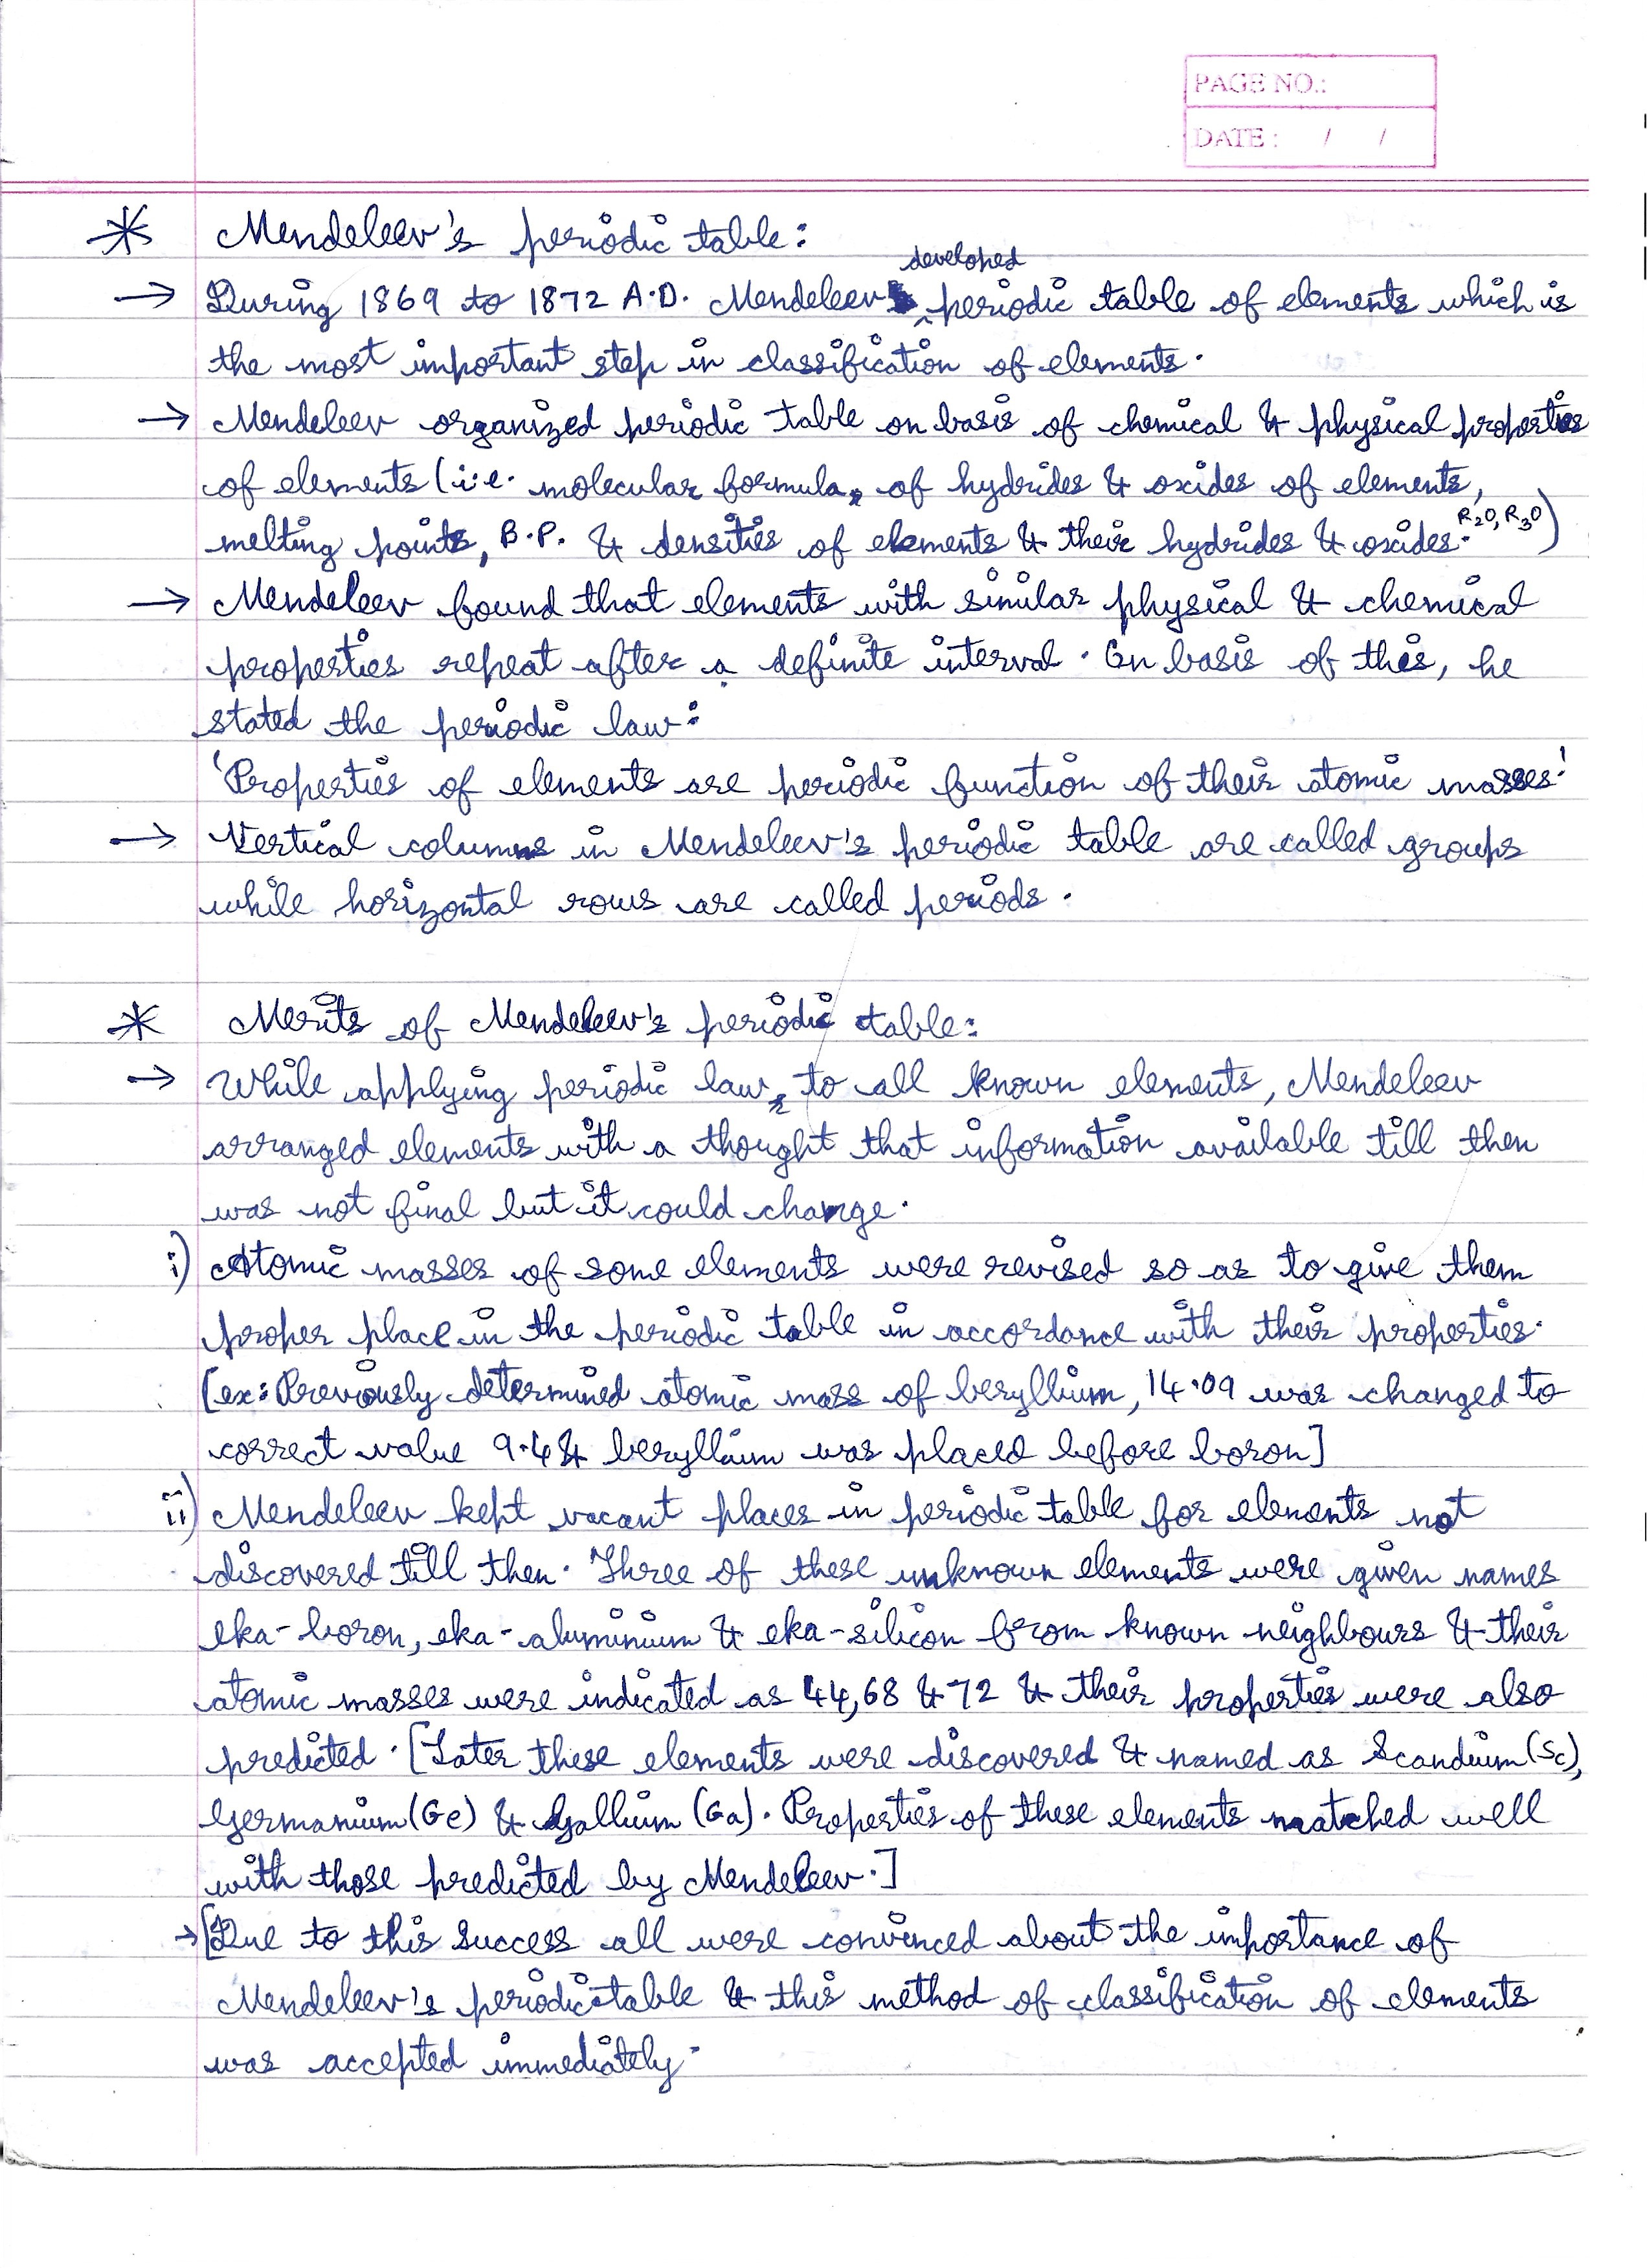 PAGE NO.:
DATE : / /
* Mendeleev's periodic table:
developed
→ During 1869 to 1872 A.D. Mendeleev ^ periodic table of elements which is
the most important step in classification of elements.
→ Mendeleev organized periodic table on basis of chemical & physical properties
of elements (i.e. molecular formula, of hydrides & oxides of elements,
melting points, B.P. & densities of elements & their hydrides & oxides. R2O, R3O)
→ Mendeleev found that elements with similar physical & chemical
properties repeat after a definite interval. On basis of this, he
stated the periodic law:
'Properties of elements are periodic function of their atomic masses.'
→ Vertical columns in Mendeleev's periodic table are called groups
while horizontal rows are called periods.
* Merits of Mendeleev's periodic table:
→ While applying periodic law, to all known elements, Mendeleev
arranged elements with a thought that information available till then
was not final but it could change.
i) Atomic masses of some elements were revised so as to give them
proper place in the periodic table in accordance with their properties.
[ex: Previously determined atomic mass of beryllium, 14.09 was changed to
correct value 9.4 & beryllium was placed before boron]
ii) Mendeleev kept vacant places in periodic table for elements not
discovered till then. Three of these unknown elements were given names
eka-boron, eka-aluminium & eka-silicon from known neighbours & their
atomic masses were indicated as 44, 68 & 72 & their properties were also
predicted. [Later these elements were discovered & named as Scandium (Sc),
Germanium (Ge) & Gallium (Ga). Properties of these elements matched well
with those predicted by Mendeleev.]
→ [Due to this success all were convinced about the importance of
Mendeleev's periodic table & this method of classification of elements
was accepted immediately.